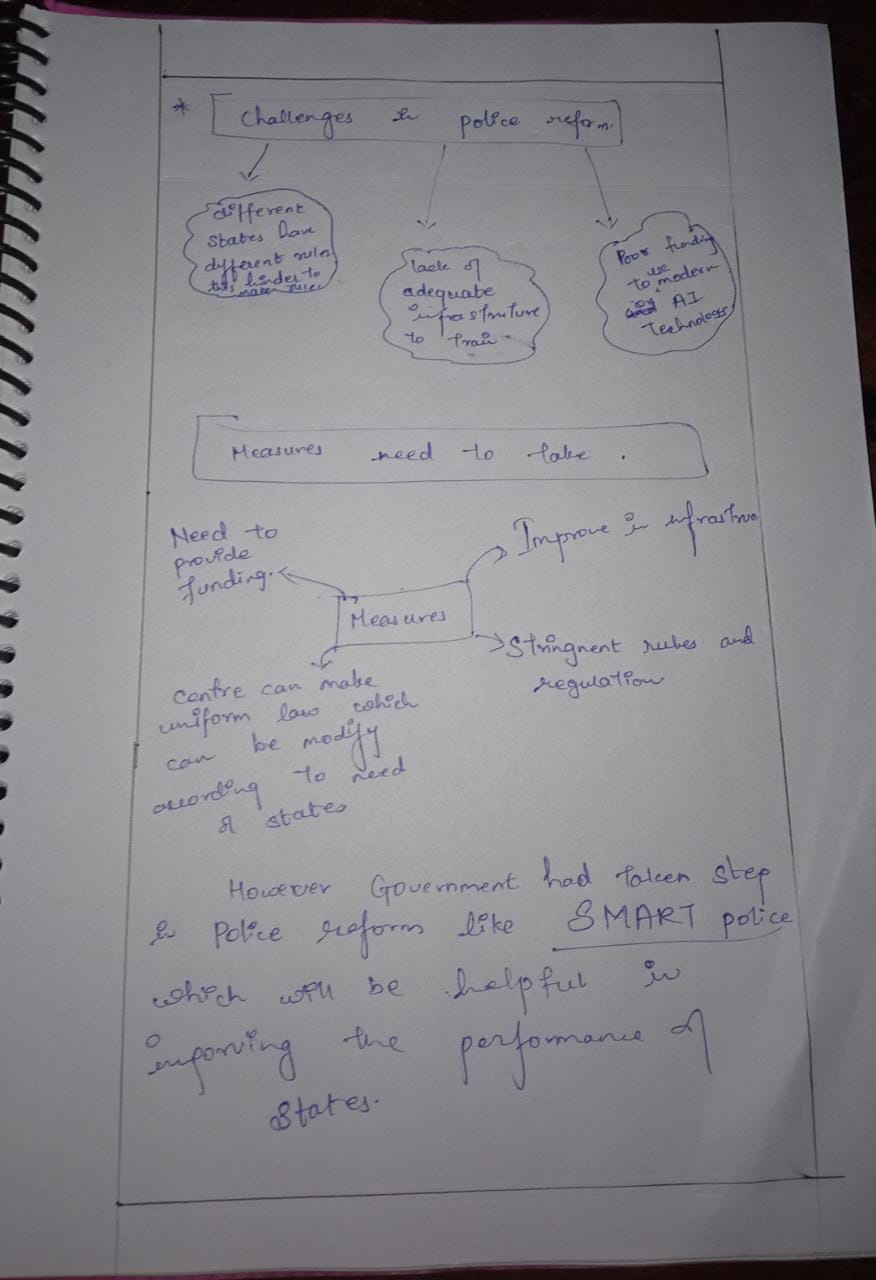 * Challenges in police reform.
different
states have
different rules
this hinder to
make rule.
lack of
adequate
infrastruture
to train
Poor funding
to use
modern
AI
technology
Measures need to take .
Need to
provide
funding.
Improve in infrastrue
Measures
Stringnent rules and
regulation
centre can make
uniform law which
can be modify
according to need
of states
However Government had taken step
in Police reform like SMART police
which will be helpful in
imporving the performance of
states.